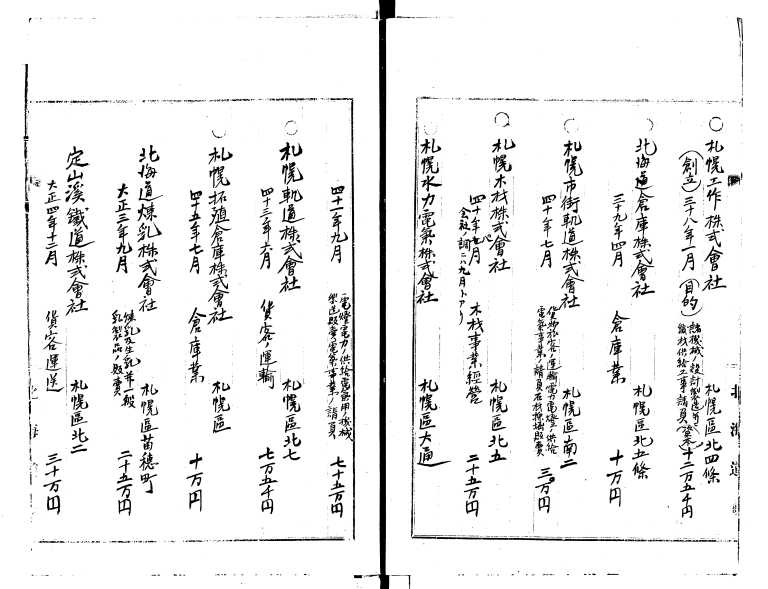 ○ 札幌工作株式會社 札幌區北四條
(創立)三十八年一月 (目的) 諸機械ノ設計製造並 (資本)十二万五千円
○ 北海道倉庫株式會社 札幌區北五條
三十九年四月 倉庫業 十万円
○ 札幌市街軌道株式會社 札幌區南二
四十年七月 貨物旅客ノ運輸電力電燈ノ供給
電氣事業ノ請負石材採掘販賣 三〇万円
○ 札幌木材株式會社 札幌區北五
四十年七月 木材事業經營 二十五万円
会社ノ調ニハ九月トアリ
○ 札幌水力電氣株式會社 札幌區大通
四十一年九月 電燈電力ノ供給電氣用ノ機械
製造販賣電氣事業ノ請負 七十五万円
○ 札幌軌道株式會社 札幌區北七
四十三年六月 貨客ノ運輸 七万五千円
○ 札幌拓殖倉庫株式會社 札幌區
四十五年七月 倉庫業 十万円
北海道煉乳株式會社 札幌區苗穂町
大正三年九月 煉乳及生乳並一般
乳製品ノ販賣 二十五万円
定山溪鐵道株式會社 札幌區北二
大正四年十二月 貨客運送 三十万円
北海道